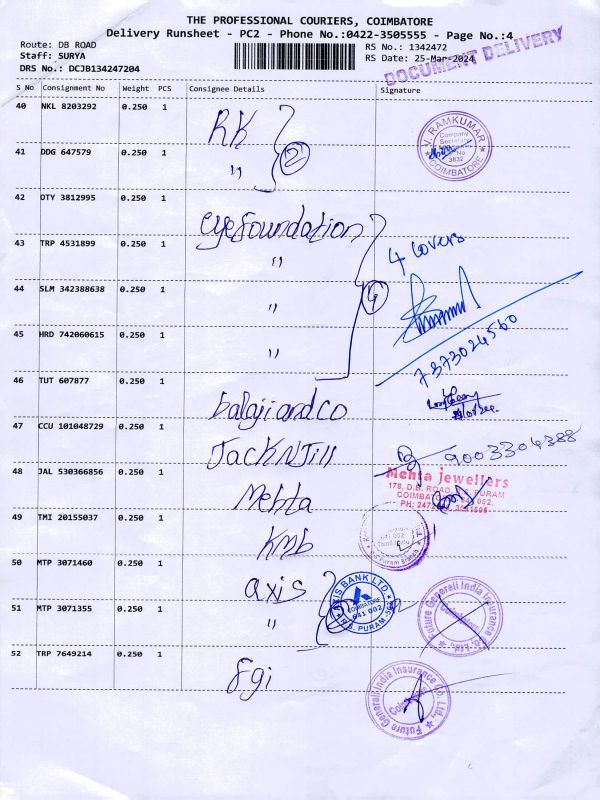 THE PROFESSIONAL COURIERS, COIMBATORE
Delivery Runsheet - PC2 - Phone No.:0422-3505555 - Page No.:4
Route: DB ROAD
Staff: SURYA
DRS No.: DCJB134247204
RS No.: 1342472
RS Date: 25-Mar-2024
DOCUMENT DELIVERY
S No Consignment No Weight PCS Consignee Details Signature
40 NKL 8203292 0.250 1 RK
V. RAMKUMAR
Company
Secretary
No
3832
COIMBATORE
41 DDG 647579 0.250 1 " 2
42 OTY 3812995 0.250 1 eye foundation
43 TRP 4531899 0.250 1 "
4 covers
44 SLM 342388638 0.250 1 " 4
45 HRD 742060615 0.250 1 "
7373024560
46 TUT 607877 0.250 1 balaji and co
47 CCU 101048729 0.250 1 Jack N Jill
9003304388
48 JAL 530366856 0.250 1 Mehta
Mehta jewellers
178, D.B. ROAD, R.S. PURAM
COIMBATORE - 641 002.
49 TMI 20155037 0.250 1 kmb
50 MTP 3071460 0.250 1 axis
AXIS BANK LTD.
COIMBATORE
641 002
R.S. PURAM
51 MTP 3071355 0.250 1 "
Future Generali India Insurance Co. Ltd.
Coimbatore
52 TRP 7649214 0.250 1 fgi
Future Generali India Insurance Co. Ltd.,
Coimbatore